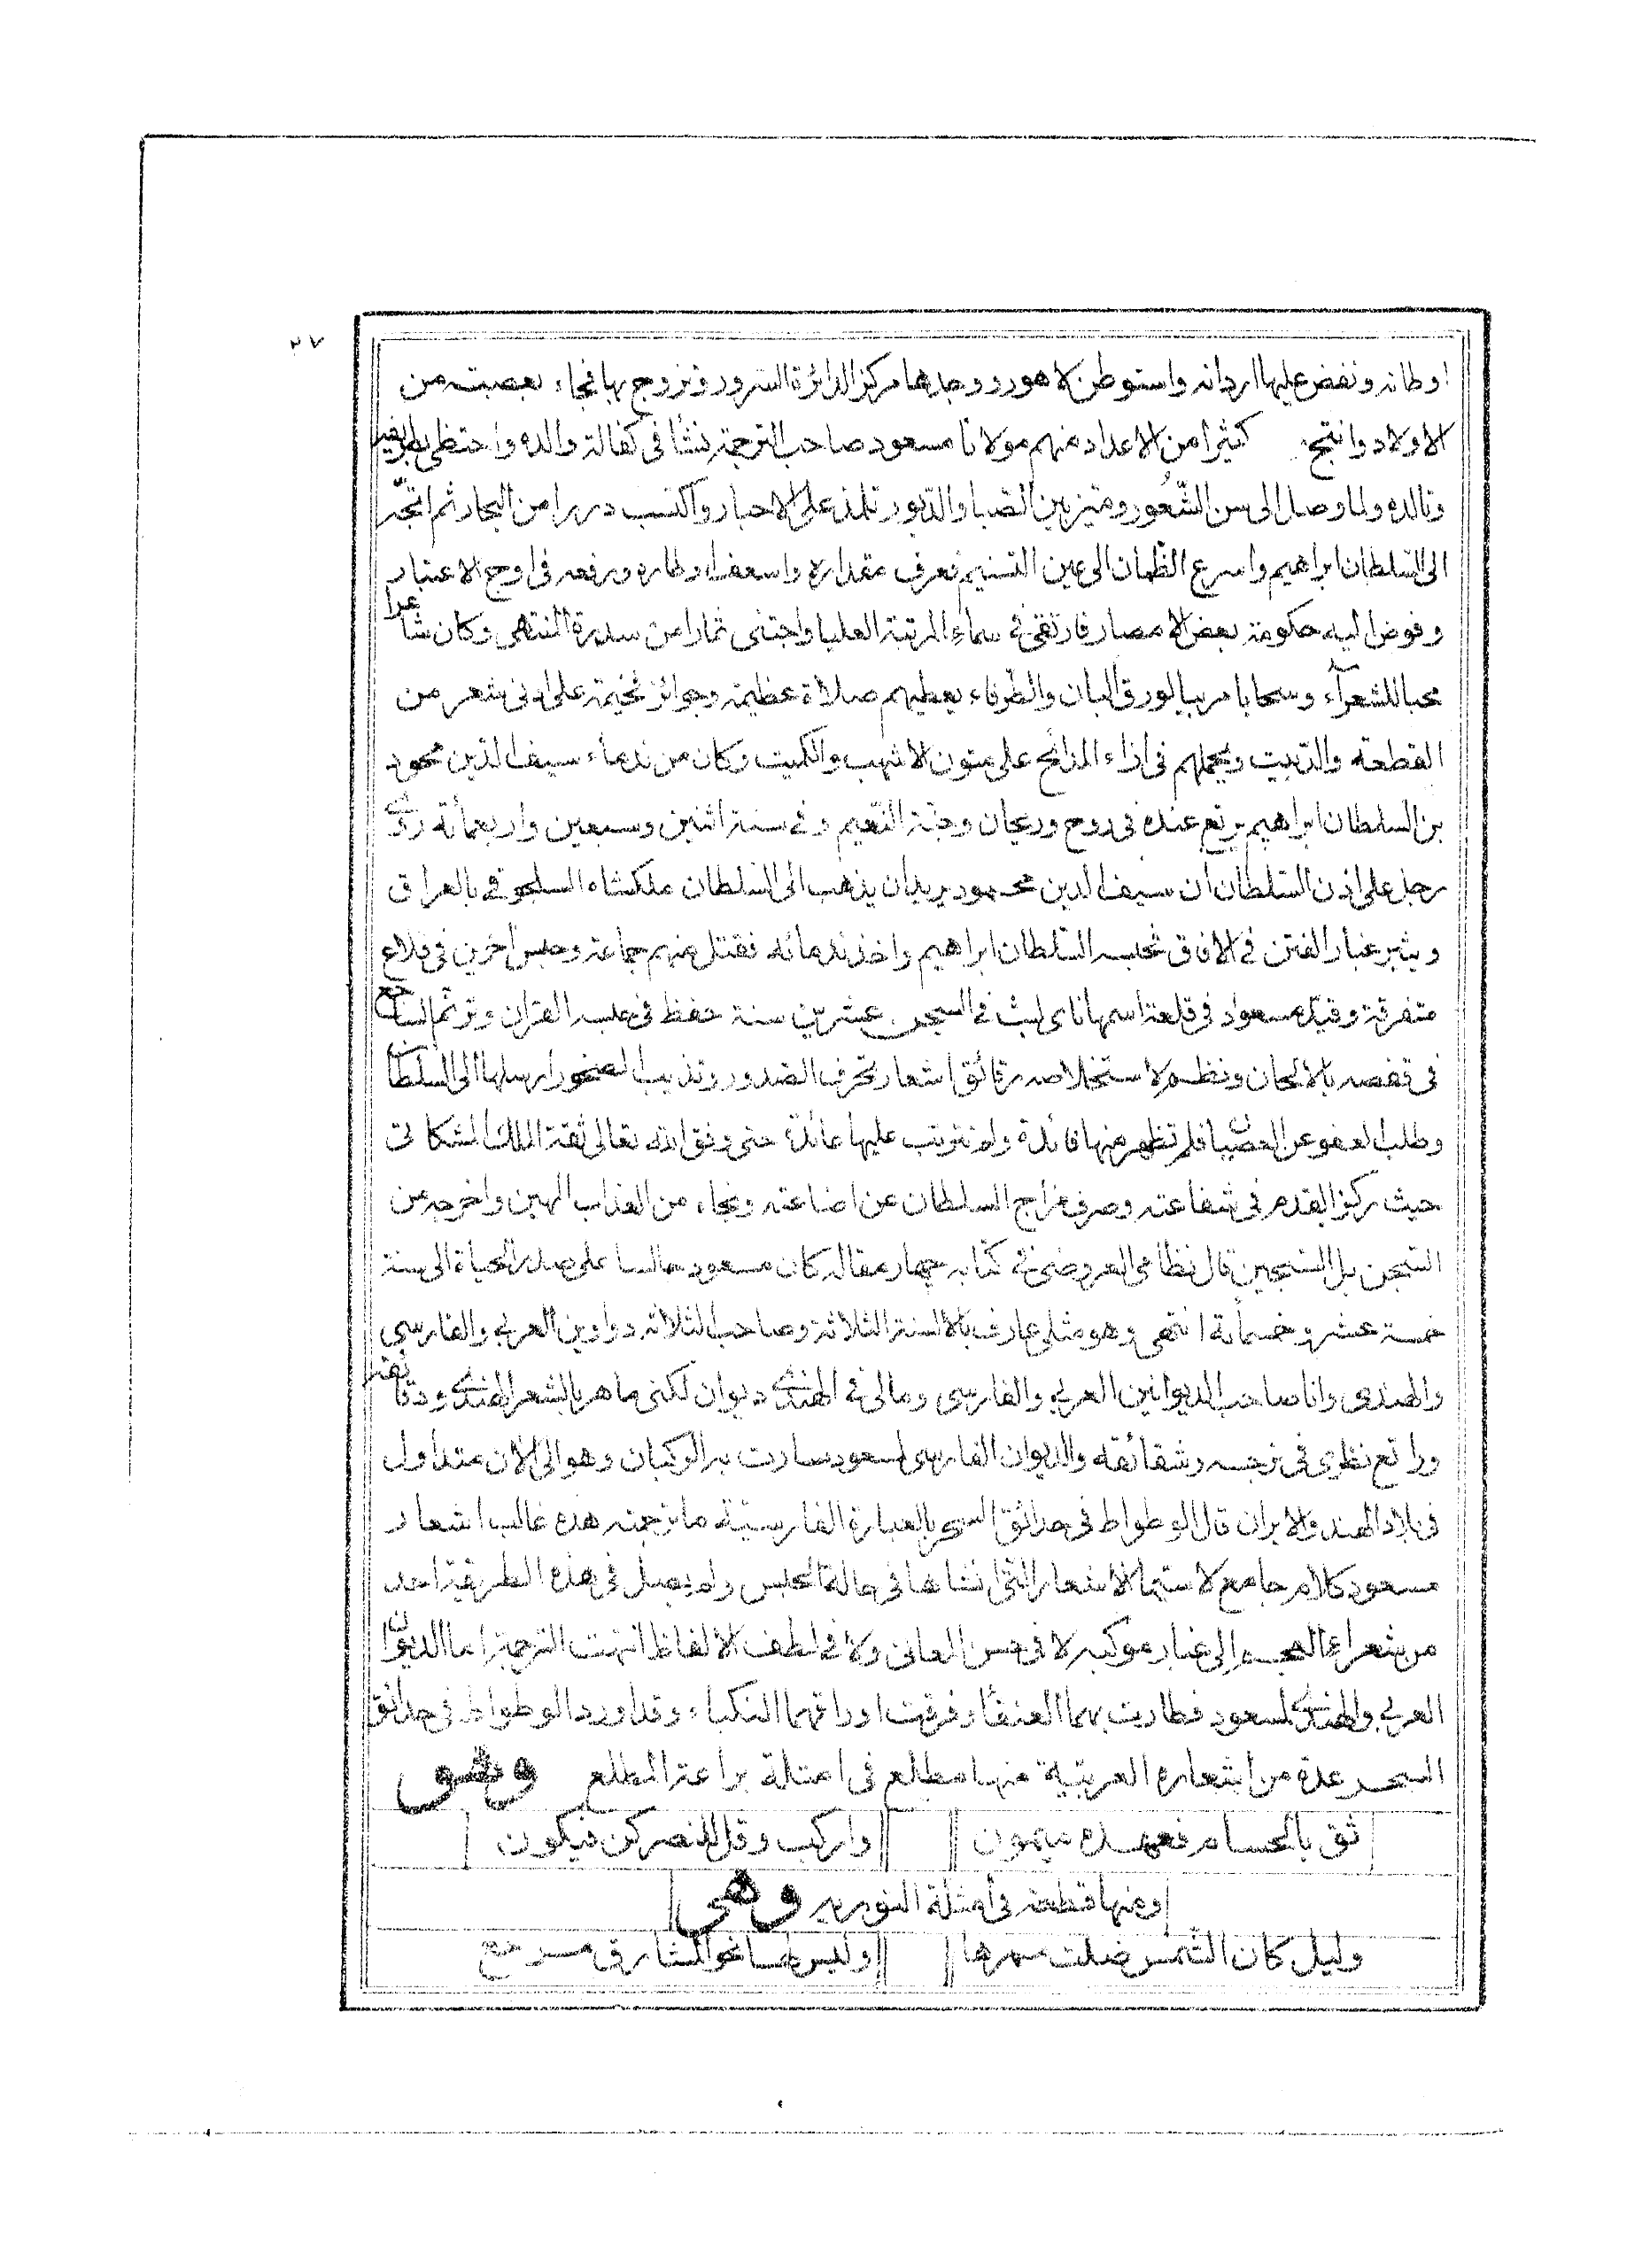 ٢٧
اوطانه ونفض عليها اردانه واستوطن لاهور ووجدها مركز الدائرة السرور وتزوج بها فجاء بعصبته من
الاولاد وانتج كثيرا من الاعداد منهم مولانا مسعود صاحب الترجمة نشأ فى كفالة والده واحتظى بطريفه
وتالده ولما وصل الى سن الشعور وميز بين الصبا والدبور تلمذ على الاحبار واكتسب دررا من البحار ثم اتجر
الى السلطان ابراهيم واسرع الظمان الى عين التسنيم فعرف مقداره واسعف اوطاره ورفعه فى اوج الاعتبار
وفوض اليه حكومة بعض الامصار فارتقى فى سماء المرتبة العليا واجتنى ثمارا من سدرة المنتهى وكان شاعرا
محبا للشعراء وسحابا مربيا لورق البان والطرفاء يعطيهم صلاة عظيمة وجوائز فخيمة على ادنى شعر من
القطعة والدبيت ويحملهم فى ازاء المدائح على متون الاشهب والكميت وكان من ندماء سيف الدين محمود
بن السلطان ابراهيم يرتع عنده فى روح وريحان وجنة النعيم وفى سنة اثنين وسبعين واربعمائة روى
رجل على اذن السلطان ان سيف الدين محمود يريد ان يذهب الى السلطان ملكشاه السلجوقى بالعراق
ويثير غبار الفتن فى الافاق فحبسه السلطان ابراهيم واخذ ندمائه فقتل منهم جماعة وحبس اخرين فى قلاع
متفرقة وقيد مسعود فى قلعة اسمها ناى لبث فى السجن عشرين سنة حفظ فى حبسه القران وترنم الساجع
فى قفصه بالالحان ونظم لاستخلاصه رقائق اشعار تحرف الصدور وتذيب الصخور ارسلها الى السلطان
وطلب العفو عن العصيان فلم تظهر منها فائدة ولم تترتب عليها عائدة حتى وفق الله تعالى ثقة الملك المشكانى
حيث ركز القدم فى شفاعته وصرف مزاج السلطان عن اضاعته ونجاه من العذاب المهين واخرجه من
السجن بل السجين قال نظامى العروضى فى كتابه چهار مقاله كان مسعود جالسا على صدر الحياة الى سنة
خمسة عشر وخمسمائة انتهى وهو مثلى عارف بالالسنة الثلاثة وصاحب الثلاثة دواوين العربى والفارسى
والهندى وانا صاحب الديوانين العربى والفارسى ومالى فى الهندى ديوان لكنى ماهر بالشعر الهندى ودقائقه
وراتع نظرى فى نرجسه وشقائقه والديوان الفارسى لمسعود سارت به الركبان وهو الى الان متداول
فى بلاد الهند والايران قال الوطواط فى حدائق السحر بالعبارة الفارسية ما ترجمته هذه غالب اشعار
مسعود كلام جامع لا سيما الاشعار التى انشاها فى حالة الحبس ولم يصل فى هذه الطريقة احد
من شعراء العجم الى غبار موكبه لا فى حسن المعانى ولا فى لطف الالفاظ انتهت الترجمة اما الديوان
العربى والهندى لمسعود فطارت بهما العنقا وفرقت اوراقهما النكباء وقد اورد الوطواط فى حدائق
السحر عدة من اشعاره العربية منها مطلع فى امثلة براعة المطلع وهو
ثق بالحسام فعهده ميمون واركب وقل للنصر كن فيكون
ومنها قطعة فى امثلة التورية وهى
وليل كان الشمس ضلت ممرها وليس لها نحو المشارق مرجع